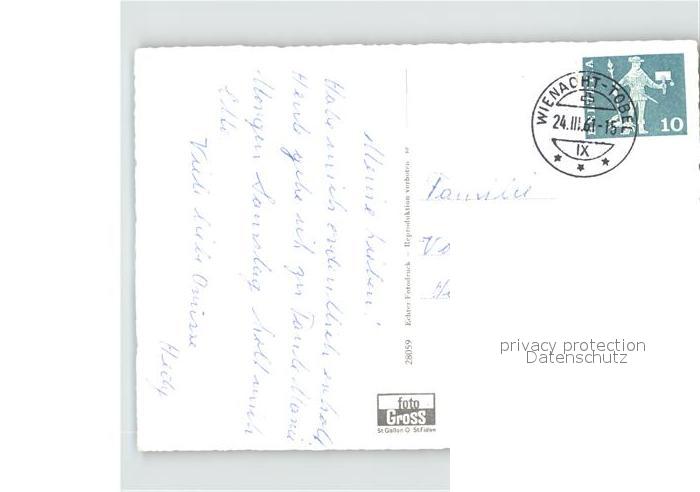 Meine Lieben!
Habe mich ordentlich erholt
Heute gehe ich zu Tante Marie
Morgen Samstag holt mich
Viele liebe Grüsse
Hedy
28059 Echter Fotodruck – Reproduktion verboten
foto
Gross
St Gallen O St Fiden
HELVETIA
10
WIENACHT-TOBEL
24.III.61-15
IX
Familie
Vo
He
privacy protection
Datenschutz